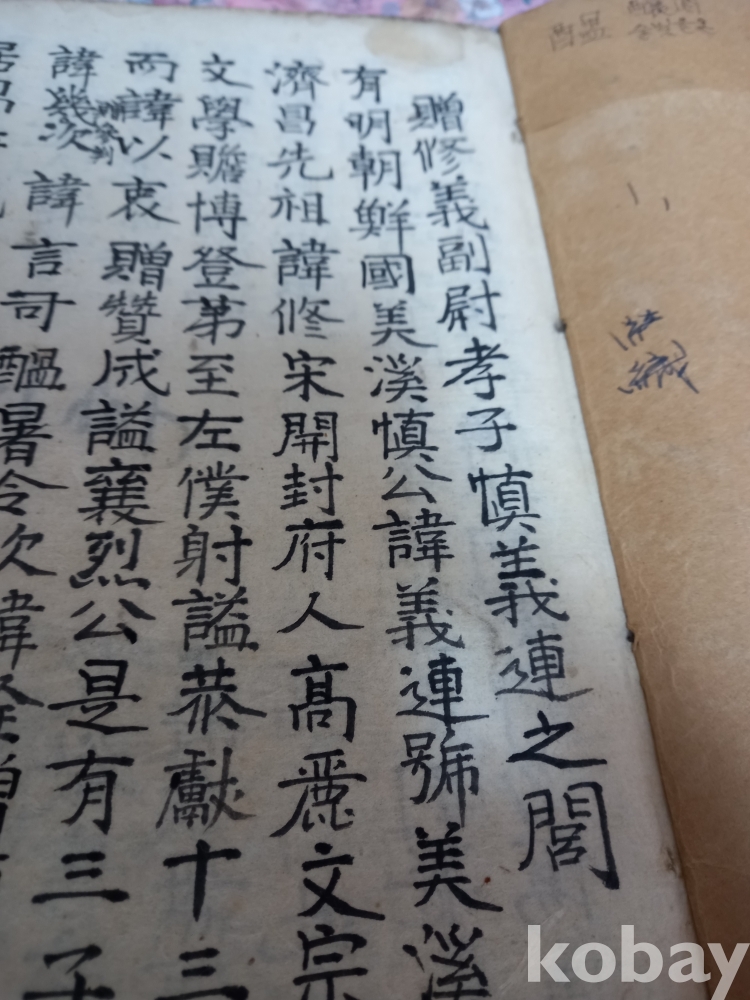 贈修義副尉孝子慎義連之閭
有明朝鮮國美溪慎公諱義連號美溪
濟昌先祖諱修宋開封府人高麗文宗
文學贍博登第至左僕射謚恭獻十三
而諱以衷贈贊成謚襄烈公是有三子
諱幾次諱言司醞暑令次諱
kobay